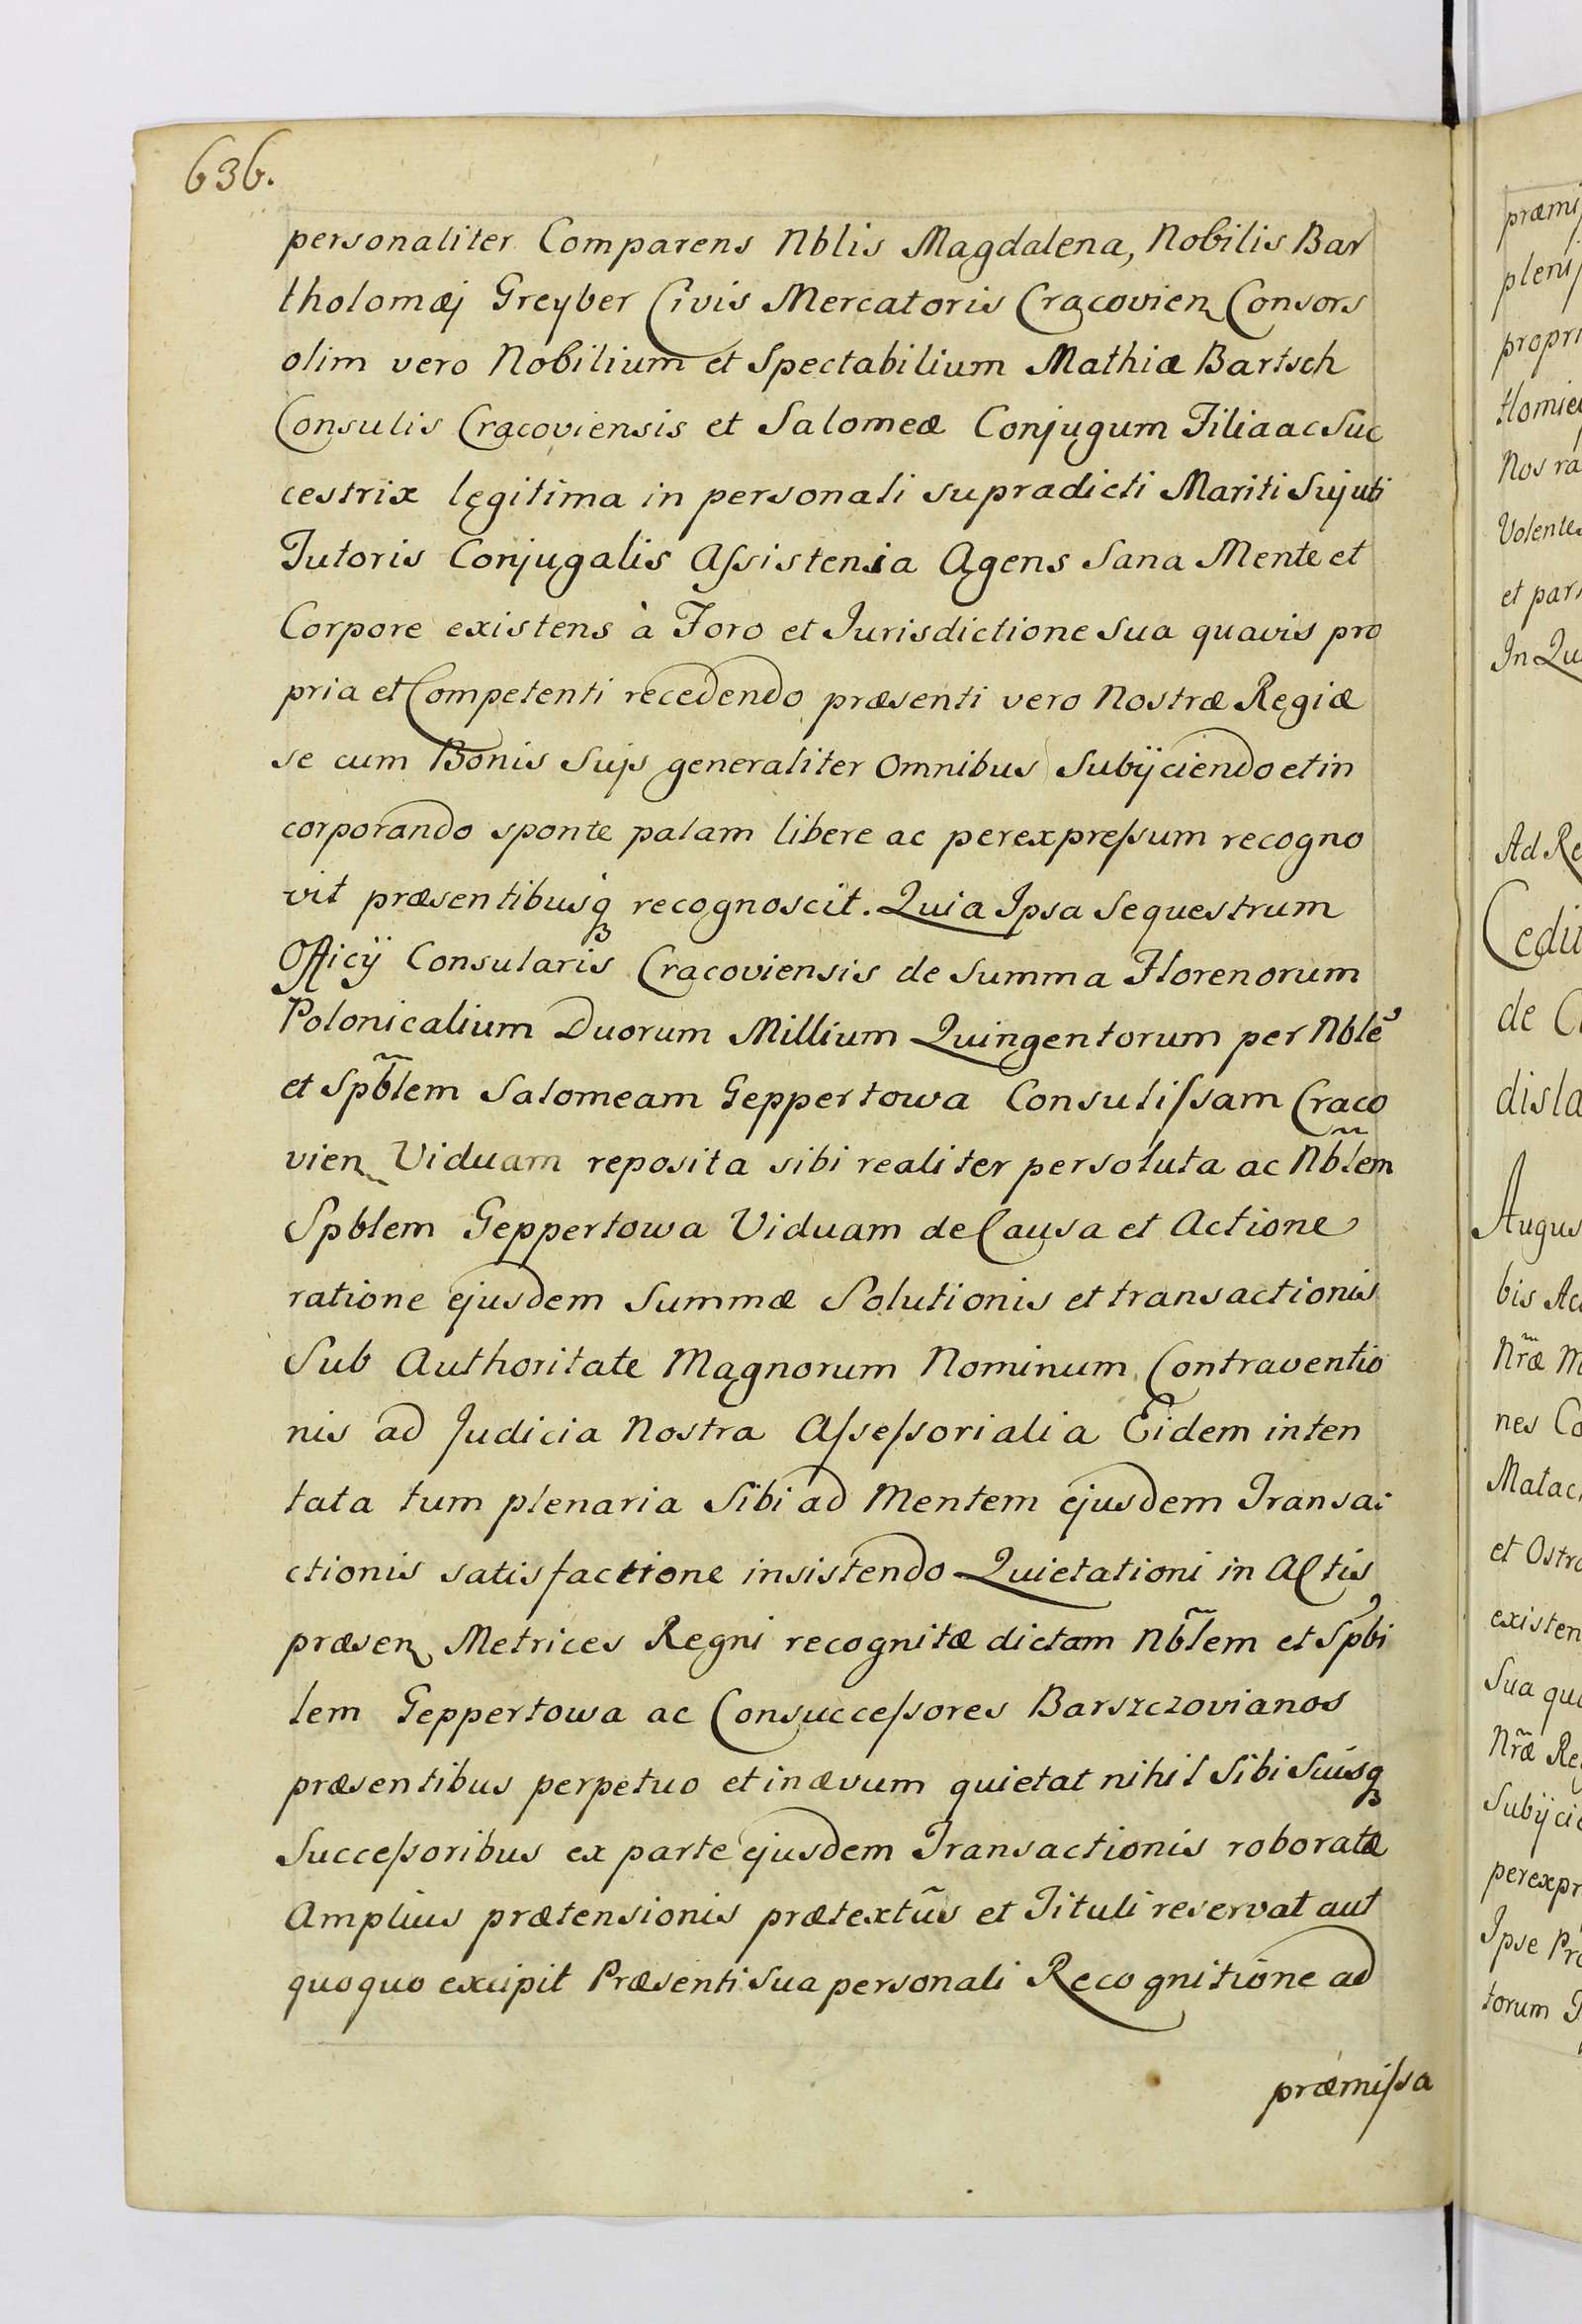 636.
personaliter Comparens Nblis Magdalena, Nobilis Bar
tholomæj Greyber Civis Mercatoris Cracovien Consors
olim vero Nobilium et Spectabilium Mathiæ Bartsch
Consulis Cracoviensis et Salomeæ Conjugum Filia ac Suc
cestrix legitima in personali supradicti Mariti Sui uti
Tutoris Conjugalis Assistensia Agens Sana Mente et
Corpore existens à Foro et Jurisdictione Sua quavis pro
pria et Competenti recedendo præsenti vero Nostræ Regiæ
se cum Bonis Suis generaliter Omnibus Subijciendo et in
corporando sponte palam libere ac perexpressum recogno
vit præsentibusq recognoscit. Quia Ipsa Sequestrum
Officij Consularis Cracoviensis de Summa Florenorum
Polonicalium Duorum Millium Quingentorum per Nble
et Spb̃lem Salomeam Geppertowa Consulissam Craco
vien Viduam reposita sibi realiter persoluta ac Nb̃lem
Spblem Geppertowa Viduam de Causa et Actione
ratione ejusdem Summæ Solutionis et transactionis
Sub Authoritate Magnorum Nominum Contraventio
nis ad Judicia Nostra Assessorialia Eidem inten
tata tum plenaria Sibi ad Mentem ejusdem Transa:
ctionis satisfactione insistendo Quietationi in Actis
præsen Metrices Regni recognitæ dictam Nb̃lem et Spbi
lem Geppertowa ac Consuccessores Barszczovianos
præsentibus perpetuo et in ævum quietat nihil Sibi Suisq
Successoribus ex parte ejusdem Transactionis roboratæ
Amplius prætensionis prætextũs et Tituli reservat aut
quoquo excipit Præsenti Sua personali Recognitione ad
præmissa
præmi
pleni
propri
Nos ra
Volentes
et par
In Qu
Ad Re
Cedit
de C
disla
Augus
bis Ac
Nr̃æ M
nes Co
Malac
et Ostro
existen
Sua qu
Nr̃æ Re
Subijci
perexpr
Ipse Pr
torum